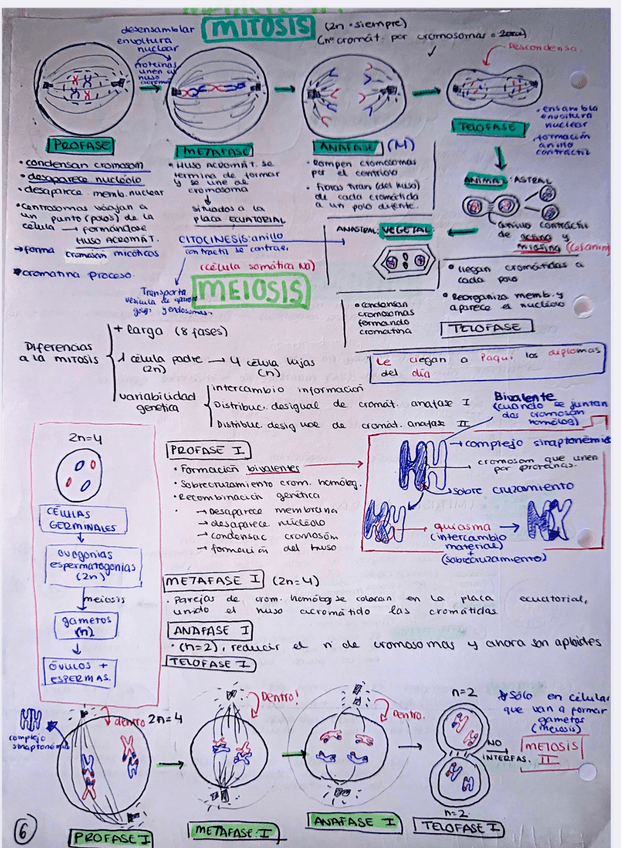 MITOSIS (2n = siempre)
desensamblar
envoltura
nuclear
proteínas
unen al
huso
Descondensa
PROFASE
METAFASE
ANAFASE (M)
TELOFASE
• condensan cromosom
• desaparece nucléolo
• desaparece memb. nuclear
• centrosomas viajan a
un punto (polos) de la
célula → formándose
HUSO ACROMÁT.
→ forma cromosom mitóticos
cromatina proceso.
• HUSO ACROMÁT. se
termina de formar
y se une al
cromosoma
situados a la
placa ECUATORIAL
CITOCINESIS: anillo
contractil se contrae.
(célula somática NO)
• Rompen cromosomas
por el centríolo
• Fibras tiran (del huso)
de cada cromátida a
a un polo difente.
• ensambla
envoltura
nuclear
• formación
anillo
contráctil
ANIMAL: ASTRAL
anillo contráctil
de actina y
miosina
ANASTRAL: VEGETAL
• llegan cromátidas a
cada polo
• Reorganiza memb. y
aparece el nucléolo
TELOFASE
• condensan
cromosomas
formando
cromatina
Transporta
MEIOSIS
Diferencias
a la mitosis
+ larga (8 fases)
1 célula padre → 4 célula hijas
(2n) (n)
variabilidad
genética
intercambio información
Distribuc. desigual de cromát. anafase I
Distribuc. desigual de cromát. anafase II
Le llegan a Paqui los diplomas
del día
Bivalente
(cuando se juntan
dos cromosom
homólog)
2n=4
CÉLULAS
GERMINALES
ovogonias
espermatogonias
(2n)
meiosis
gametos
(n)
ÓVULOS +
ESPERMAS.
PROFASE I
• Formación bivalentes
• Sobrecruzamiento crom. homólog.
• Recombinación genética
→ desaparece membrana
→ desaparece nucléolo
→ condensac cromosóm
→ formación del huso
complejo sinaptonémic
cromosom que unen
por proteínas.
sobre cruzamiento
quiasma
(intercambio
material)
+
(sobrecruzamiento)
METAFASE I (2n=4)
• Parejas de crom. homólog se colocan en la placa ecuatorial,
unido el huso acromático las cromátidas
ANAFASE I
• (n=2), reducir el n de cromosomas y ahora son aploides
TELOFASE I
complejo
sinaptonémi
dentro 2n=4
Dentro!
Dentro.
n=2
n=2
NO
INTERFAS.
* Sólo en célular
que van a formar
gametos
(meiosis)
MEIOSIS
II
PROFASE I
METAFASE I
ANAFASE I
TELOFASE I
6